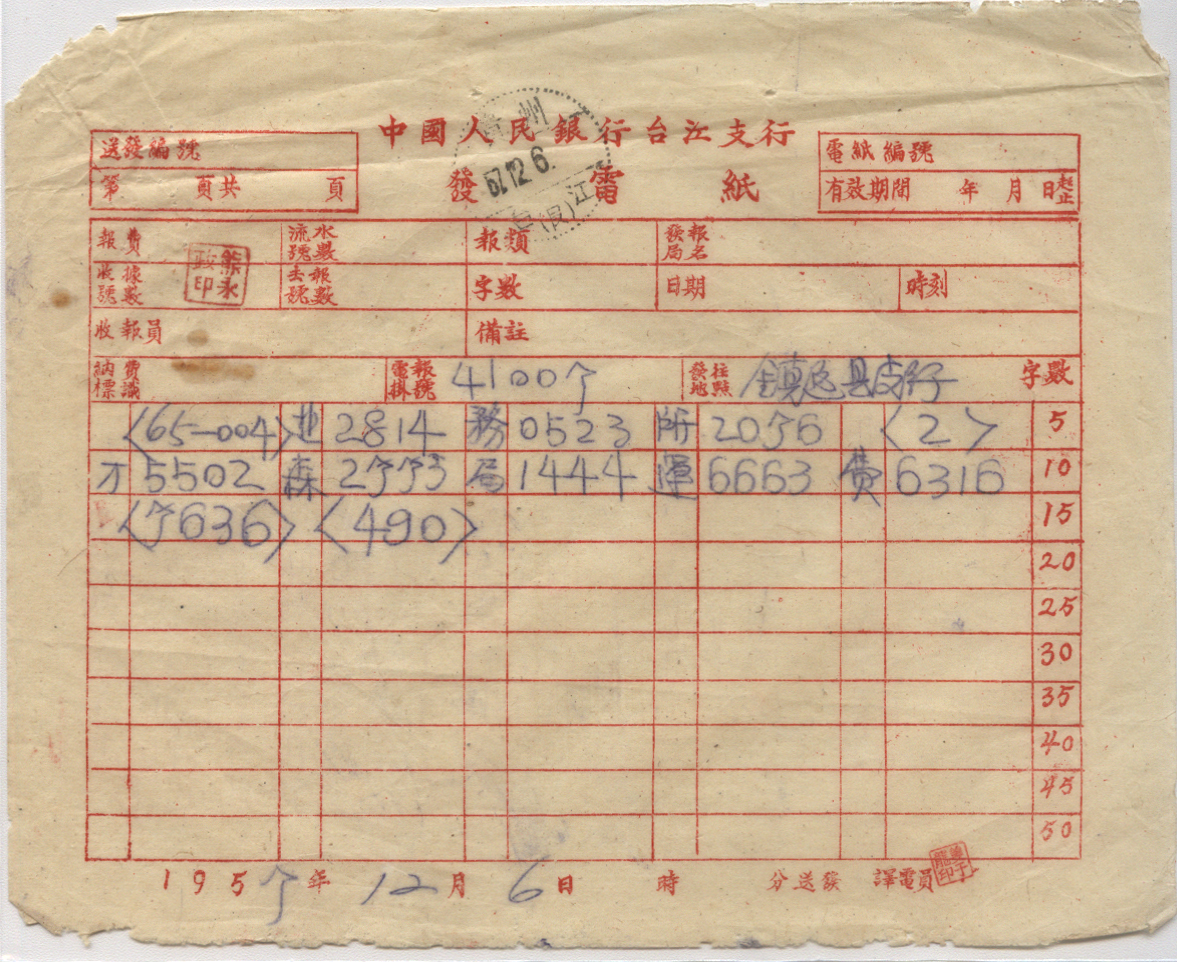 中國人民銀行台江支行
發電紙
送發編號
第 頁共 頁
電紙編號
有效期間 年 月 日起止
貴州
57.12.6.
台(民)江
報費 流水號數 報類 發報局名
收據號數 去報號數 字數 日期 時刻
收報員 備註
納費標識 電報掛號 41007 發往地點 鎮远县支行 字數
〈65-004〉 业 2814 務 0523 所 2076 〈2〉 5
才 5502 森 2773 局 1444 運 6663 費 6316 10
〈7636〉 〈490〉 15
20
25
30
35
40
45
50
1957年 12月 6日 時 分送發 譯電員